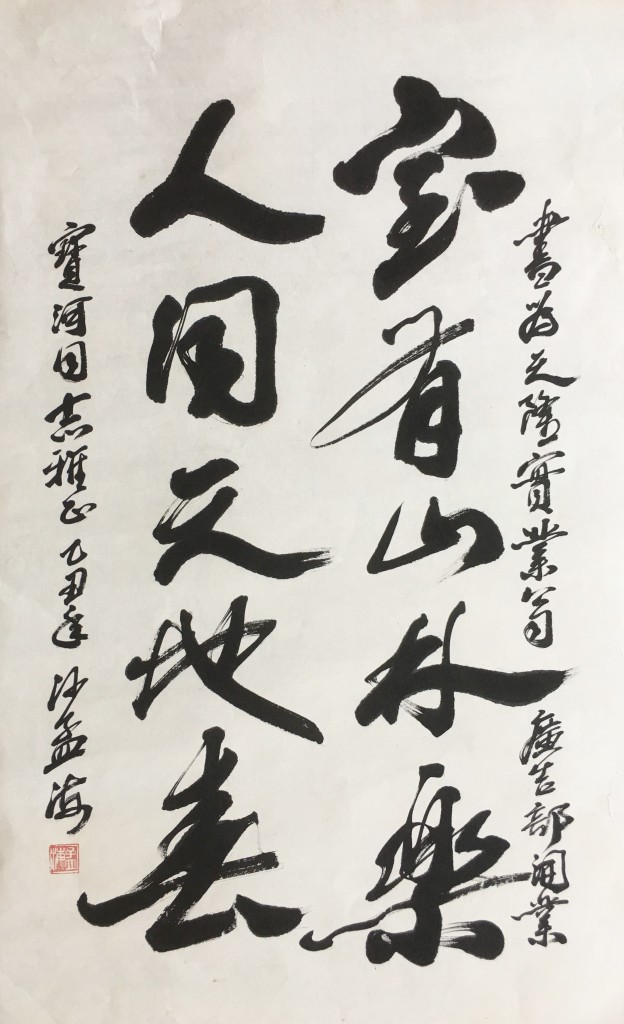 書為天隆實業公司 廣告部開業
室有山林樂
人同天地春
寶河同志雅正 乙丑年 沙孟海